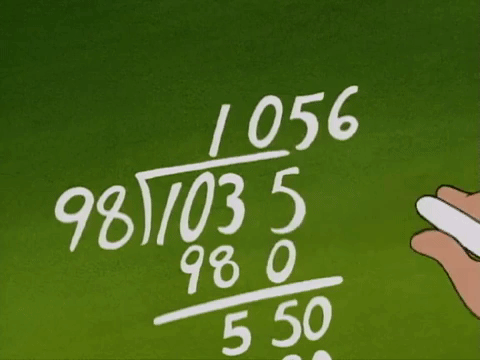 1056
98)1035
980
550